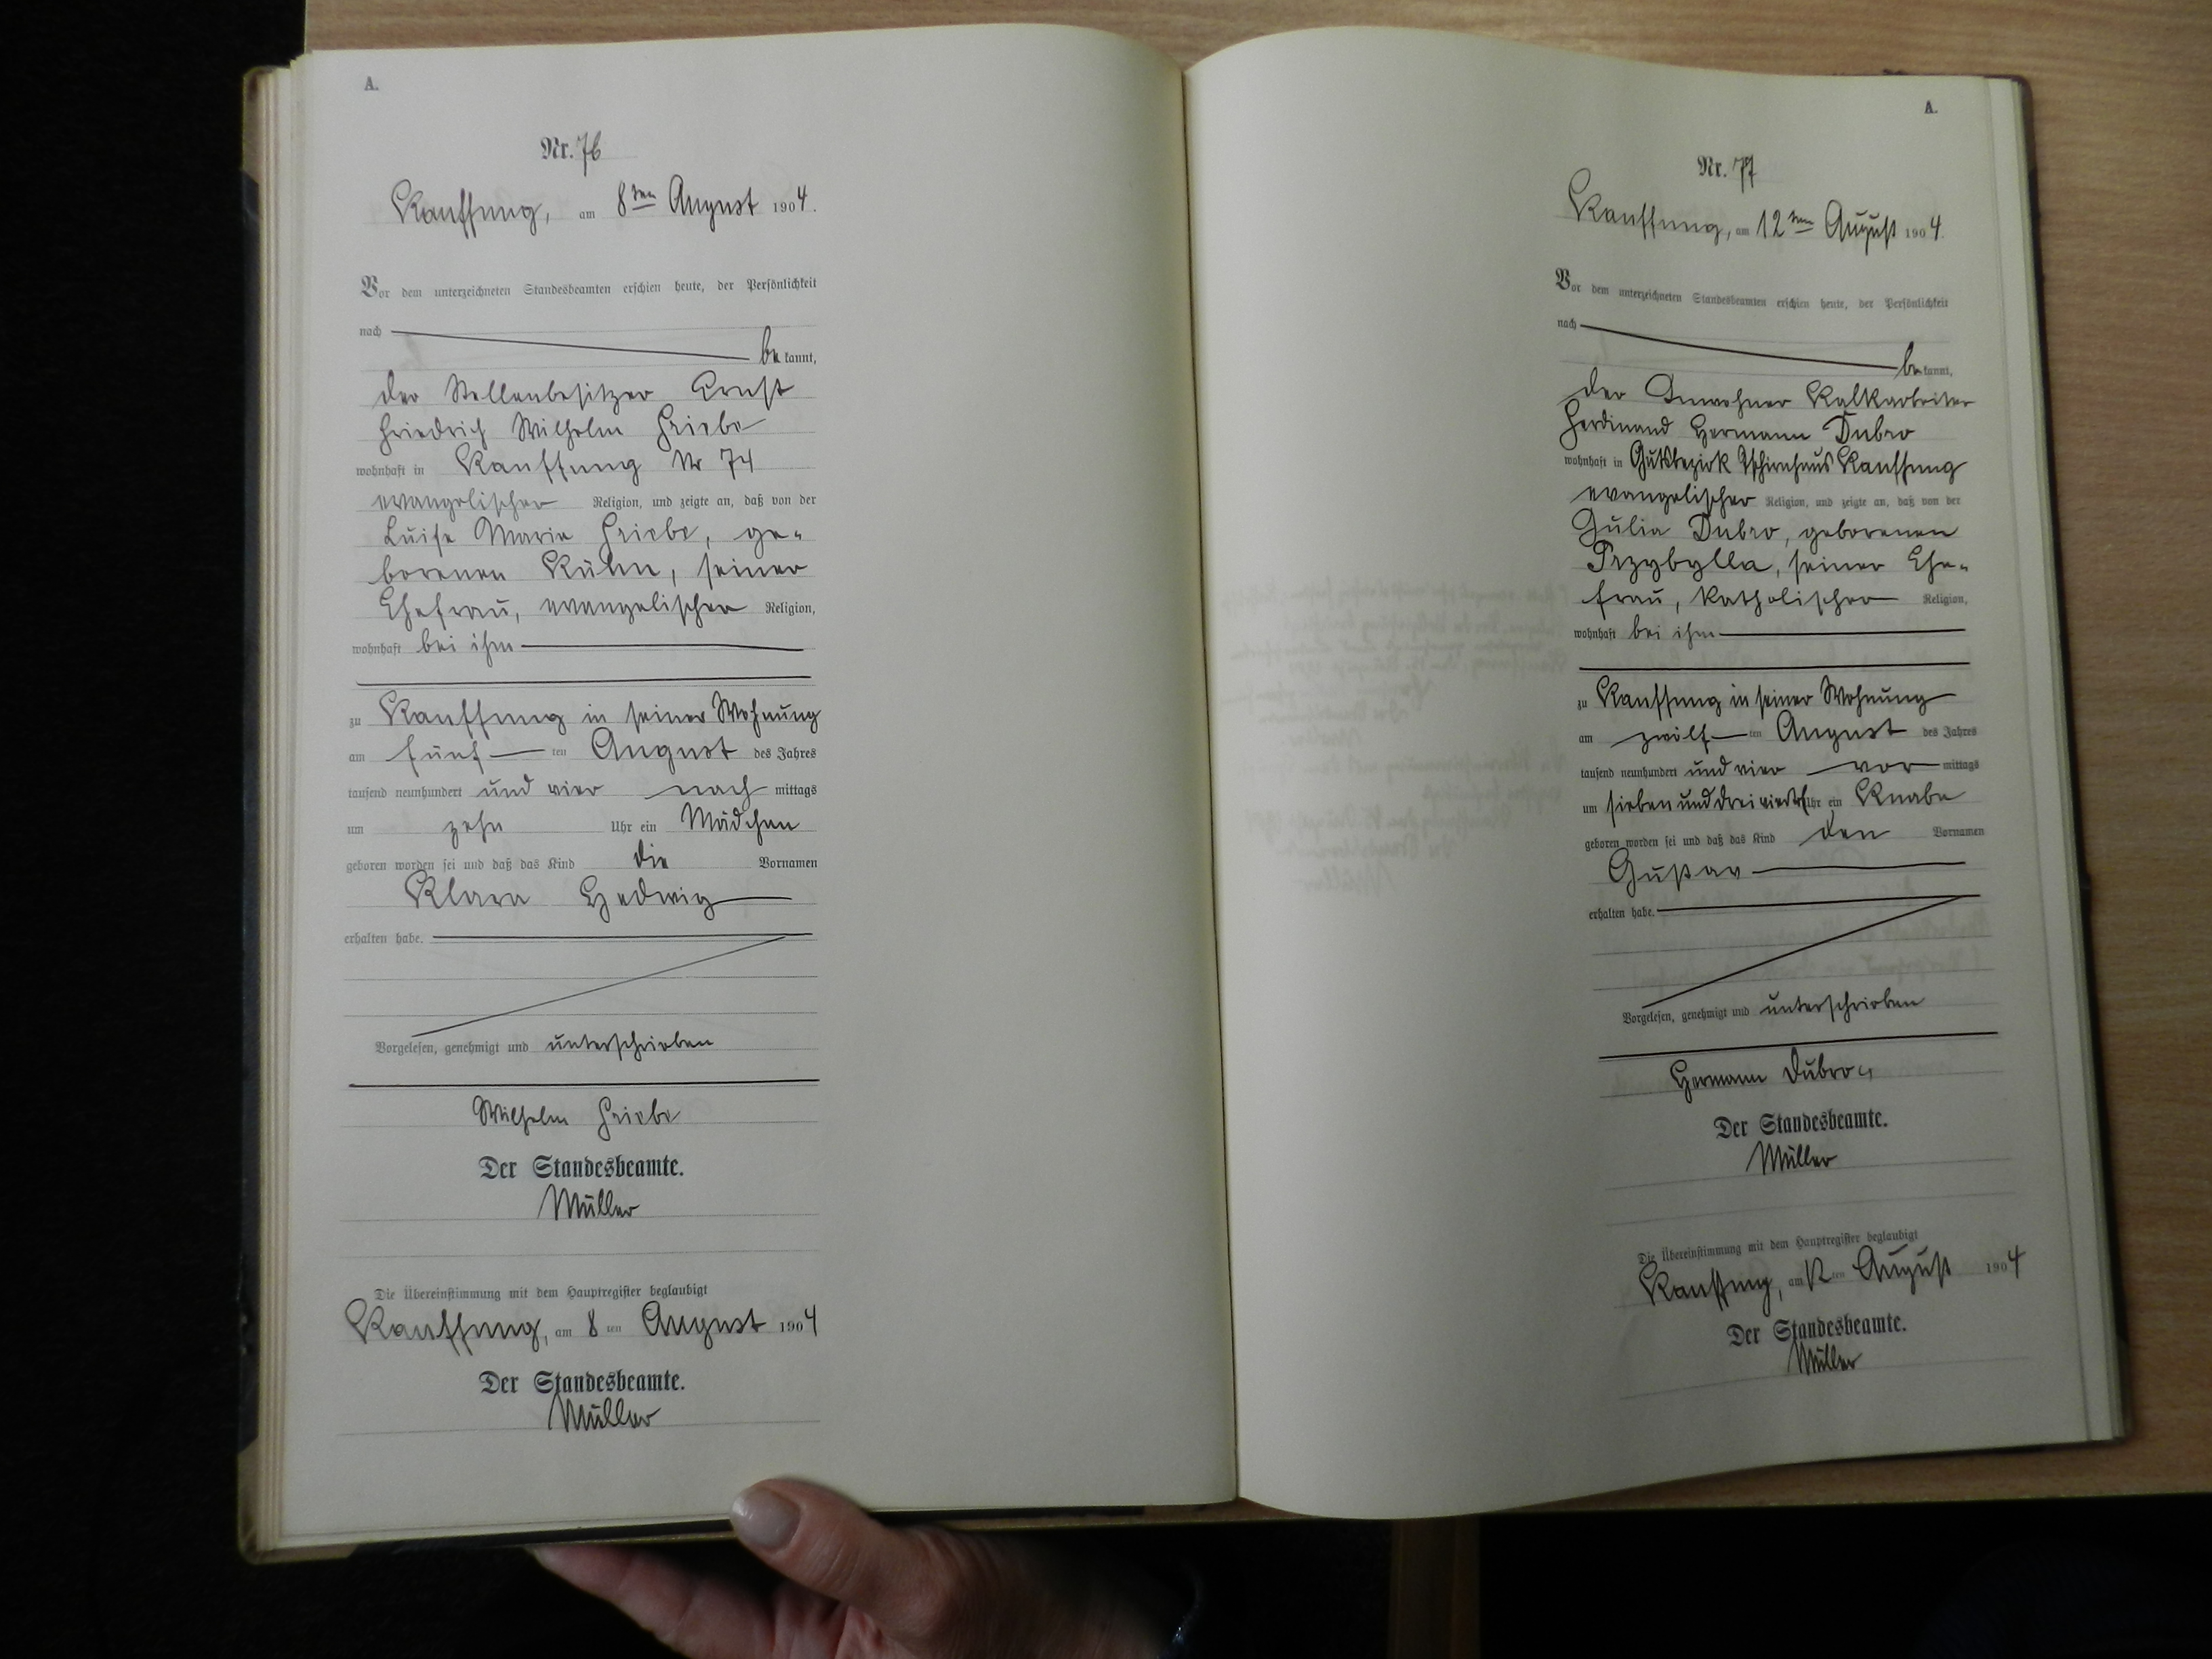 A.
Nr. 76
Kauffung, am 8ten August 1904.
Vor dem unterzeichneten Standesbeamten erschien heute, der Persönlichkeit
nach
be kannt,
der Stellenbesitzer Ernst
Friedrich Wilhelm Friebe
wohnhaft in Kauffung Nr 74
evangelischer Religion, und zeigte an, daß von der
Luise Marie Friebe, ge-
borenen Kühn, seiner
Ehefrau, evangelischer Religion,
wohnhaft bei ihm
zu Kauffung in seiner Wohnung
am fünf ten August des Jahres
tausend neunhundert und vier nach mittags
um zehn Uhr ein Mädchen
geboren worden sei und daß das Kind die Vornamen
Klara Hedwig
erhalten habe.
Vorgelesen, genehmigt und unterschrieben
Wilhelm Friebe
Der Standesbeamte.
Müller
Die Übereinstimmung mit dem Hauptregister beglaubigt
Kauffung, am 8 ten August 1904
Der Standesbeamte.
Müller
A.
Nr. 77
Kauffung, am 12ten August 1904.
Vor dem unterzeichneten Standesbeamten erschien heute, der Persönlichkeit
nach
be kannt,
der Inwohner Kalkarbeiter
Ferdinand Hermann Dubro
wohnhaft in Gutsbezirk Tschirnhaus Kauffung
evangelischer Religion, und zeigte an, daß von der
Julia Dubro, geborenen
Przybylla, seiner Ehe-
frau, katholischer Religion,
wohnhaft bei ihm
zu Kauffung in seiner Wohnung
am zwölf ten August des Jahres
tausend neunhundert und vier vor mittags
um sieben und dreiviertel Uhr ein Knabe
geboren worden sei und daß das Kind den Vornamen
Gustav
erhalten habe.
Vorgelesen, genehmigt und unterschrieben
Hermann Dubro
Der Standesbeamte.
Müller
Die Übereinstimmung mit dem Hauptregister beglaubigt
Kauffung, am 12 ten August 1904
Der Standesbeamte.
Müller